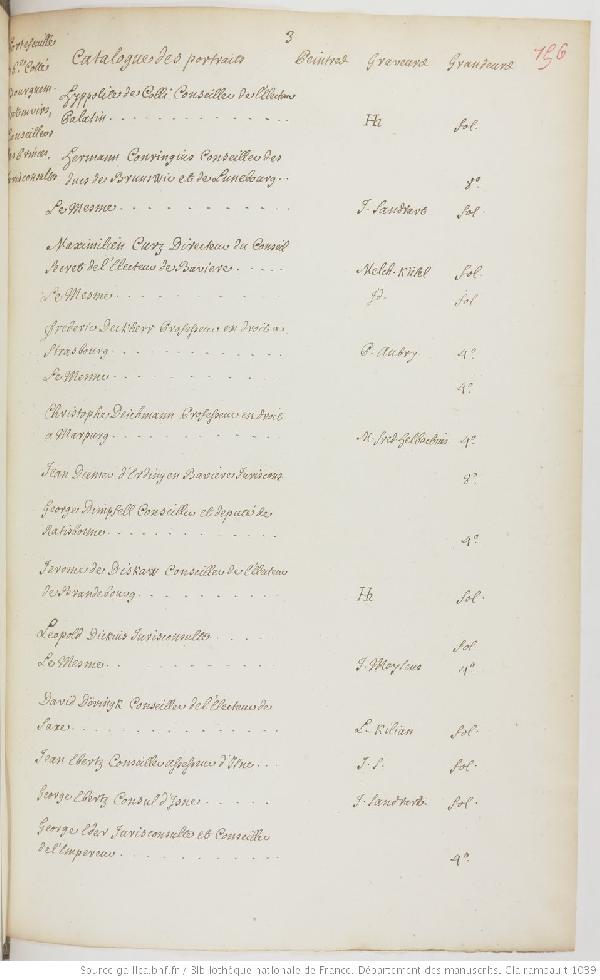 3
156
Portefeuille
Collé
Bourguem.
Conseillers
Princes,
Jurisconsultes
Catalogue des portraits Peintres Graveurs Grandeurs
Hyppolite de Colli Conseiller de l'Electeur
Palatin. HH fol.
Hermann Conringius Conseiller des
ducs de Brunswic et de Lunebourg. 8º
Le Mesme J. Sandrart fol.
Maximilien Curz Directeur du Conseil
Secret de l'Electeur de Baviere Melch. Küsel fol.
Le Mesme Jd. fol
Frederic Deckherr Professeur en droit a
Strasbourg P. Aubry 4º
Le Mesme 4º
Christophe Deichmann Professeur en droit
a Marpurg M. fred. 4º
Jean d'Erding en Baviere Juriscons. 8º
George Dimpfell Conseiller et deputé de
Ratisbonne 4º
Jerome de Diskaw Conseiller de l'Electeur
de Brandebourg HH fol.
Leopold Jurisconsulte fol.
Le Mesme J. Meyssens 4º
David Döringk Conseiller de l'Electeur de
Saxe L. Kilian fol.
Jean Ebertz Conseiller assesseur d'Isne J. S. fol.
George Ebertz Consul d'Isne J. Sandrart fol.
George Eder Jurisconsulte et Conseiller
de l'Empereur 4º
Source gallica.bnf.fr / Bibliothèque nationale de France. Département des manuscrits. Clairambault 1039